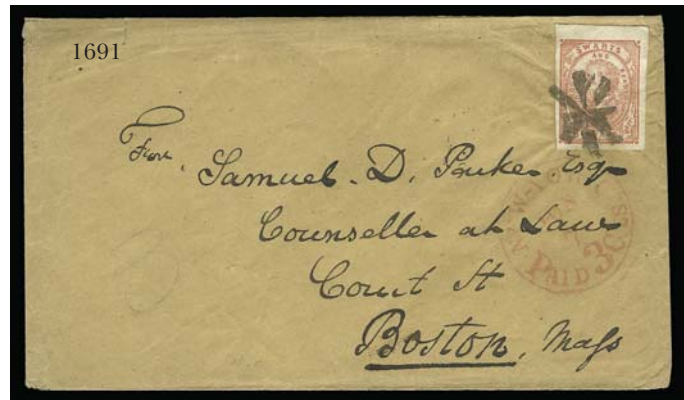 1691
SWARTS
AND
For
Samuel. D. Parker Esqr
Counseller at Law
Court St
Boston, Mass
NEW-YORK
PAID 3 Cts